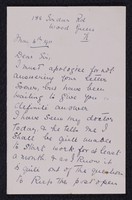 Wood Green
Dear Sir
I must apologise for not
answering your letter
sooner, but have been
waiting to give you
definite answer.
I have seen my doctor
today, & he tells me I
shall be quite unable
to start work for at least
a month & as I know it
is quite out of the question
to keep the post open